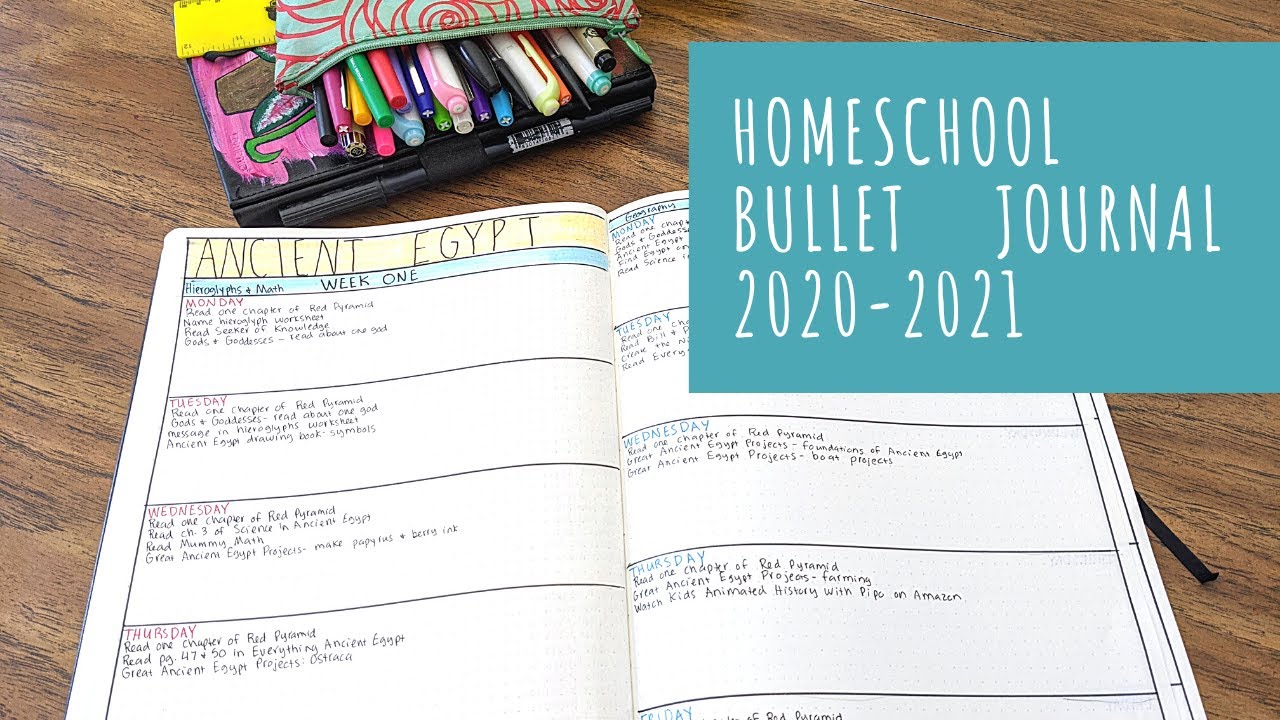 HOMESCHOOL
BULLET JOURNAL
2020-2021
ANCIENT EGYPT
Hieroglyphs & Math WEEK ONE
MONDAY
Read one chapter of Red Pyramid
Name hieroglyph worksheet
Read Seeker of Knowledge
Gods & Goddesses - read about one god
TUESDAY
Read one chapter of Red Pyramid
Gods & Goddesses - read about one god
message in hieroglyphs worksheet
Ancient Egypt drawing book - symbols
WEDNESDAY
Read one chapter of Red Pyramid
Read ch. 3 of Science In Ancient Egypt
Read Mummy Math
Great Ancient Egypt Projects - make papyrus & berry ink
THURSDAY
Read one chapter of Red Pyramid
Read pg. 47 & 50 in Everything Ancient Egypt
Great Ancient Egypt Projects: Ostraca
Geography
MONDAY
Read one chap
Gods & Goddess
Ancient Egypt
Find Egypt on
Read Science in
TUESDAY
Read one cha
Read Bill &
Create the Ni
Read Every
WEDNESDAY
Read one chapter of Red Pyramid
Great Ancient Egypt Projects - foundations of Ancient Egypt
Great Ancient Egypt Projects - boat projects
THURSDAY
Read one chapter of Red Pyramid
Great Ancient Egypt Projects - farming
Watch Kids Animated History With Pipo on Amazon
FRIDAY
Read one chapter of Red Pyramid